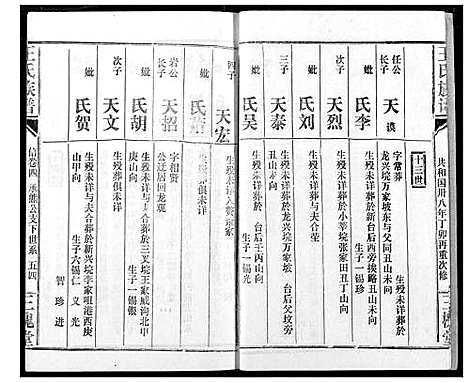 王氏族谱
共和国卅八年丁卯再重次修
三槐堂
十三世
任公长子 天漠
字常葬
龙兴垸万家坡东与父同丑山未向
妣 李氏
生殁未详葬於新台后西旁挨路丑山未向
生子一锡珍
次子 天烈
生殁未详葬於小莘垸张家田丑山未向
妣 刘氏
生殁未详与夫合茔
三子 天泰
生殁未详葬於龙兴垸万家坡
丑山未向
妣 吴氏
生殁未详葬於
台后壬丙山向
生子一锡光
四子 天宏
生殁未详
妣氏
生殁葬俱未详
岩公长子 天招
字相贤
公迁居回龙观
妣 胡氏
生殁未详与夫合葬於三叉垸王家威沟北甲
庚山向
生子一锡银
次子 天文
生殁葬俱未详
妣 贺氏
生殁未详与夫合葬於新兴垸李家咀港西庚
山甲向
生子六锡仁 义 光
智 珍 进
王氏族谱
信卷四 承熊公支下世系 五四
三槐堂